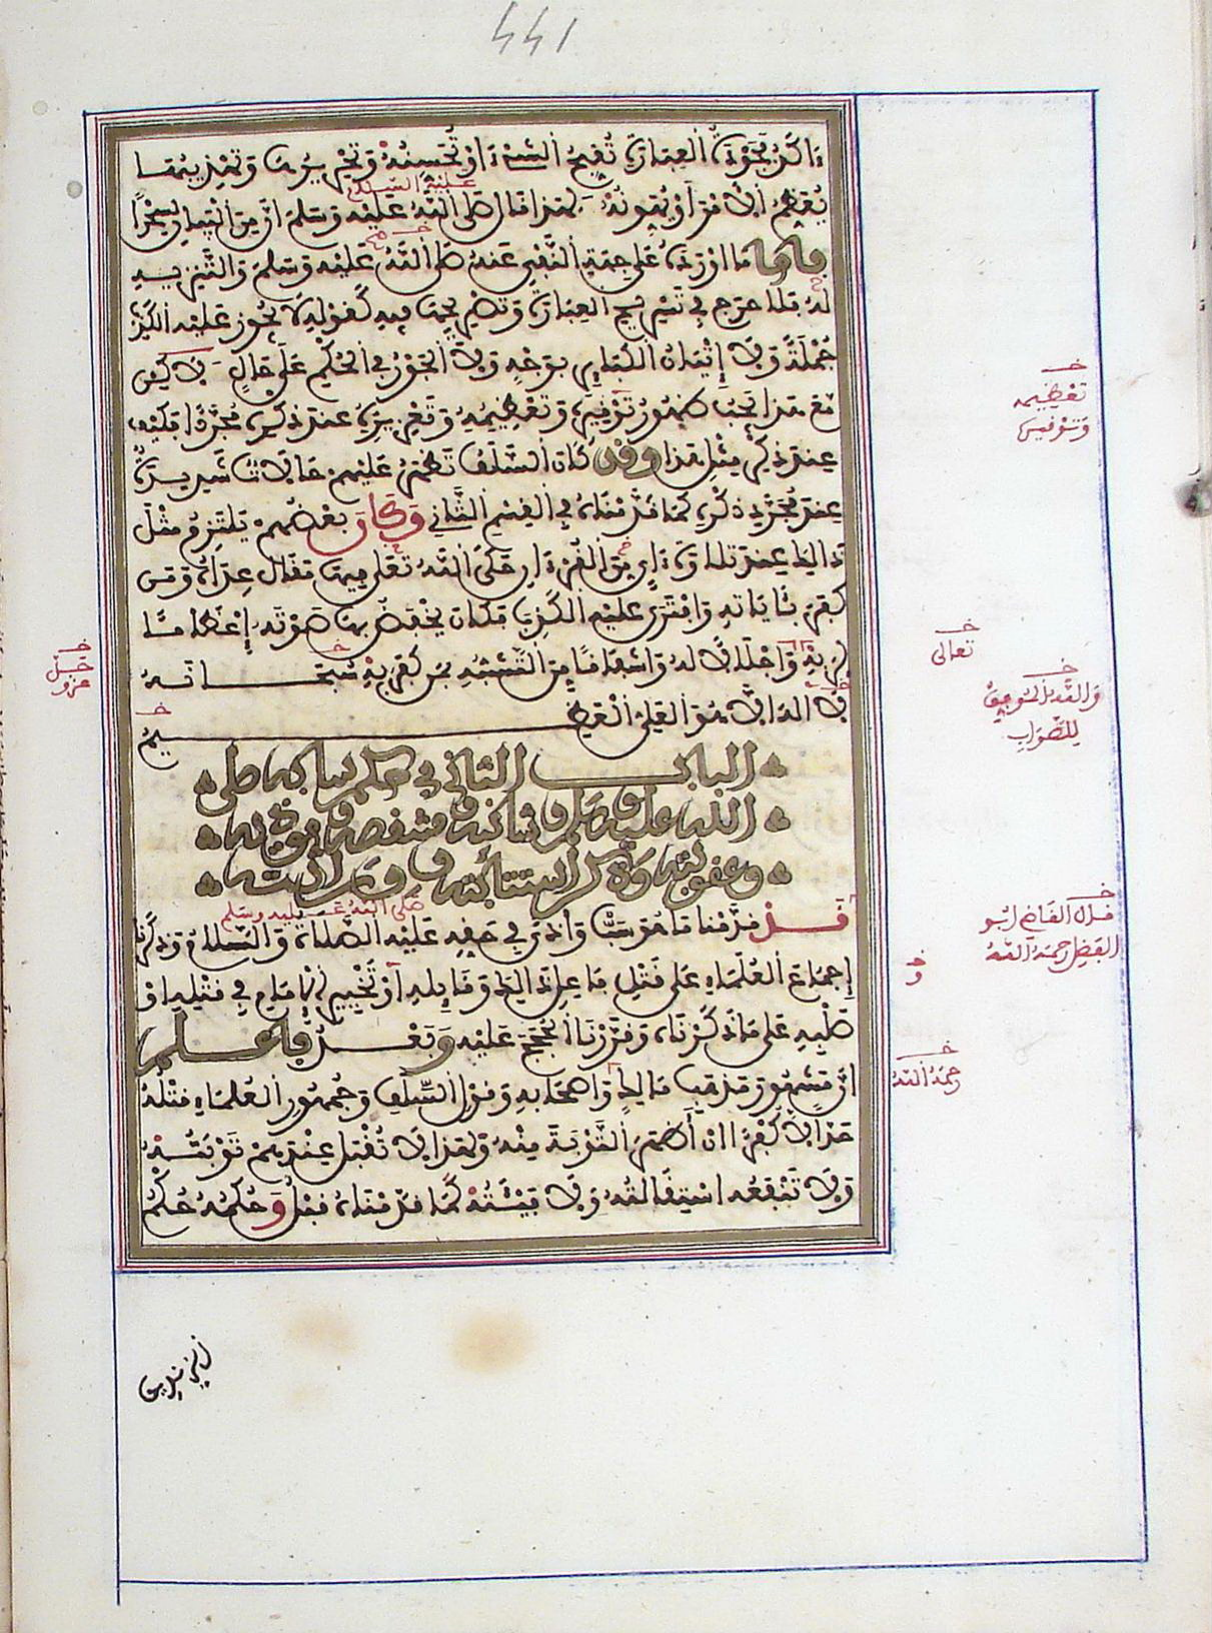 441
ذاكر بجودة العبارة تقبح الشيء او تحسنه وتحريرها وتهذيبها
يعظم الأمر أو يهونه لهذا قال صلى الله عليه وسلم ان من البيان لسحرا
عليه السلام
فاما ما اورده على جهة النفي عنه صلى الله عليه وسلم والتنزيه
له فلا حرج في تسريح العبارة وتصريحها فيه كقوله لا يجوز عليه الكذب
جملة ولا إتيان الكبائر بوجه ولا الجور في الحكم على حال لاكن
مع هذا يجب ظهور توقيره وتعظيمه وتعزيزه عند ذكره مجردا فكيف
عند ذكر مثل هذا وقد كان السلف تظهر عليهم حالات شديدة
عند مجرد ذكره كما قدمناه في القسم الثاني وكان بعضهم يلتزم مثل
ذالك عند تلاوة ءاي من القرءان حكى الله تعلى فيها مقال عداه ومن
كفر بئاياته وافترى عليه الكذب فكان يخفض بها صوته إعظاما
لربه واجلالا له واشفاقا من التشبه بمن كفر به سبحانه
لا اله الا هو العلي العظيم
الباب الثاني في حكم سابه صلى
الله عليه وسلم وشانئه ومنتقصه وموذيه
وعقوبته وذكر استتابته ووراثته
قد قدمنا ما هو سب وأذى في حقه عليه الصلاة والسلام وذكرنا
صلى الله عليه وسلم
إجماع العلماء على قتل فاعل ذالك وقائله أو تخيير الإمام في قتله او
صلبه على ما ذكرناه وقررنا الحجج عليه وبعد فاعلم
ان مشهور مذهب مالك واصحابه وقول السلف وجمهور العلماء قتله
حدا لا كفرا ان أظهر التوبة منه ولهذا لا تقبل عندهم توبته
ولا تنفعه استقالته ولا فيئته كما قدمناه قبل وحكمه حكم
خ
تعظيمه
وتوقيره
خ
تعالى
خ
والله الموفق
للصواب
خ
جل
عزو
خ
قال القاضي ابو
الفضل رحمه الله
خ
و
خ
رحمه الله